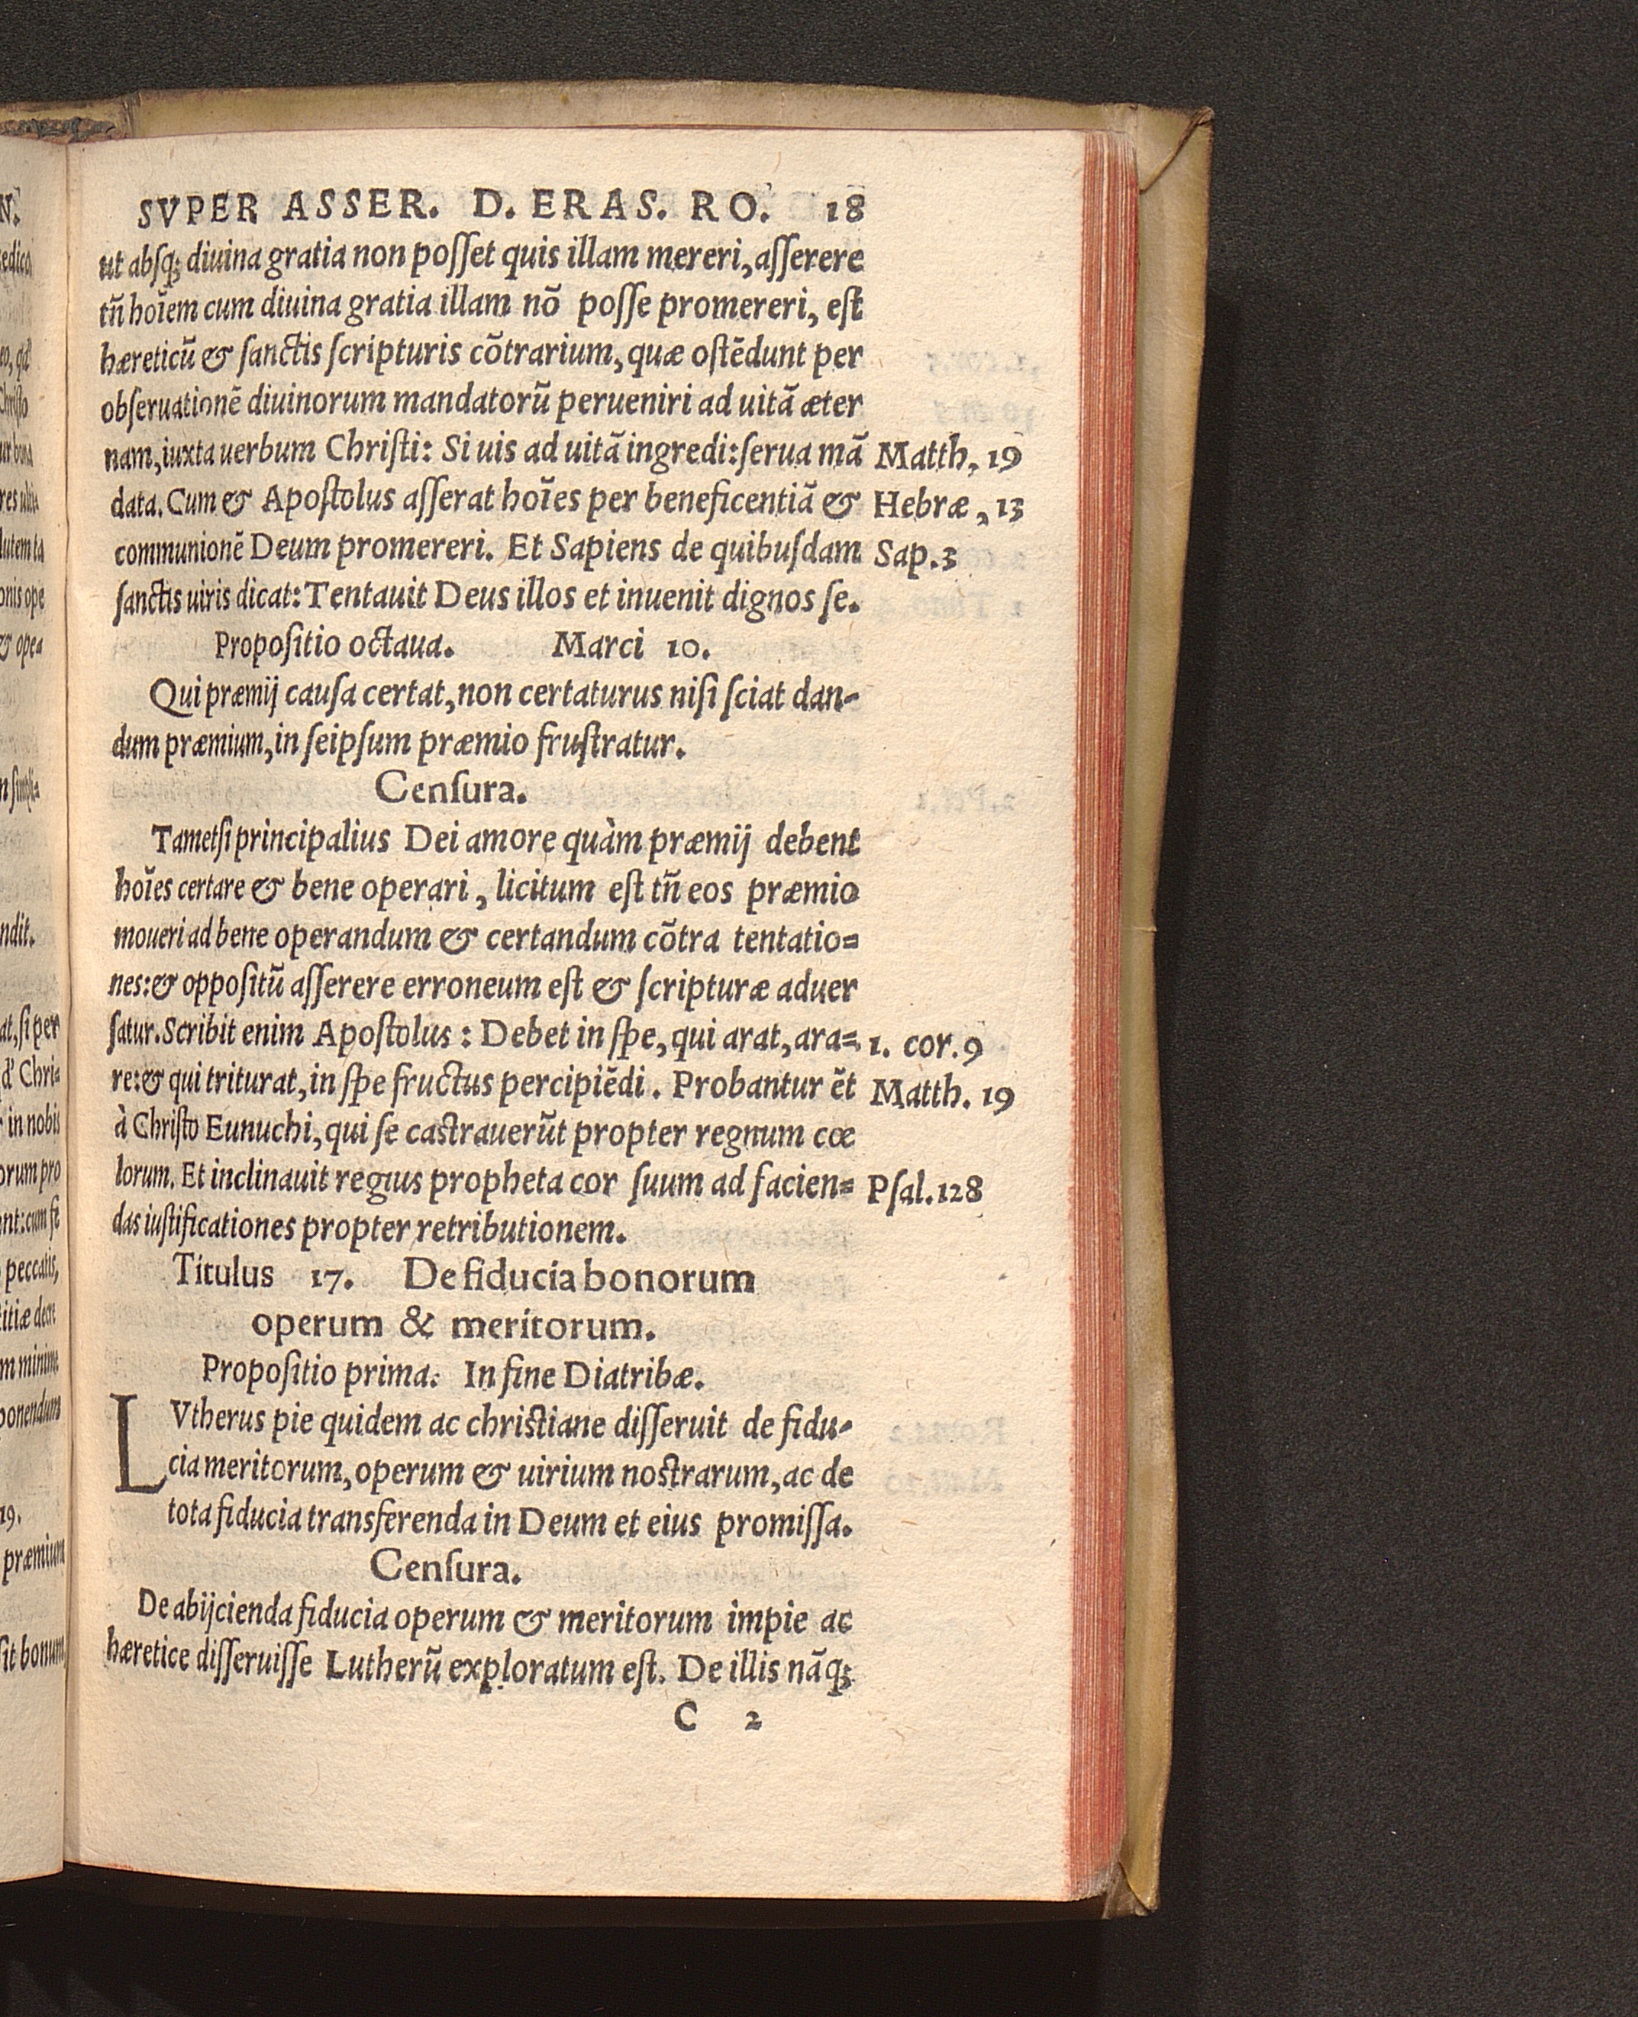 SVPER ASSER. D. ERAS. RO. 18
ut absq; diuina gratia non posset quis illam mereri, asserere
tñ hoĩem cum diuina gratia illam nõ posse promereri, est
hæreticũ & sanctis scripturis cõtrarium, quæ ostẽdunt per
obseruationẽ diuinorum mandatorũ perueniri ad uitã æter
nam, iuxta uerbum Christi: Si uis ad uitã ingredi: serua mã Matth. 19
data. Cum & Apostolus asserat hoĩes per beneficentiã & Hebræ, 13
communionẽ Deum promereri. Et Sapiens de quibusdam Sap. 3
sanctis uiris dicat: Tentauit Deus illos et inuenit dignos se.
Propositio octaua. Marci 10.
Qui præmij causa certat, non certaturus nisi sciat dan-
dum præmium, in seipsum præmio frustratur.
Censura.
Tametsi principalius Dei amore quàm præmij debent
hoĩes certare & bene operari, licitum est tñ eos præmio
moueri ad bene operandum & certandum cõtra tentatio=
nes: & oppositũ asserere erroneum est & scripturæ aduer
satur. Scribit enim Apostolus: Debet in spe, qui arat, ara= 1. cor. 9
re: & qui triturat, in spe fructus percipiẽdi. Probantur ẽt Matth. 19
à Christo Eunuchi, qui se castrauerũt propter regnum cœ
lorum. Et inclinauit regius propheta cor suum ad facien= Psal. 128
das iustificationes propter retributionem.
Titulus 17. De fiducia bonorum
operum & meritorum.
Propositio prima. In fine Diatribæ.
LVtherus pie quidem ac christiane disseruit de fidu-
cia meritorum, operum & uirium nostrarum, ac de
tota fiducia transferenda in Deum et eius promissa.
Censura.
De abijcienda fiducia operum & meritorum impie ac
hæretice disseruisse Lutherũ exploratum est. De illis nãq;
C 2